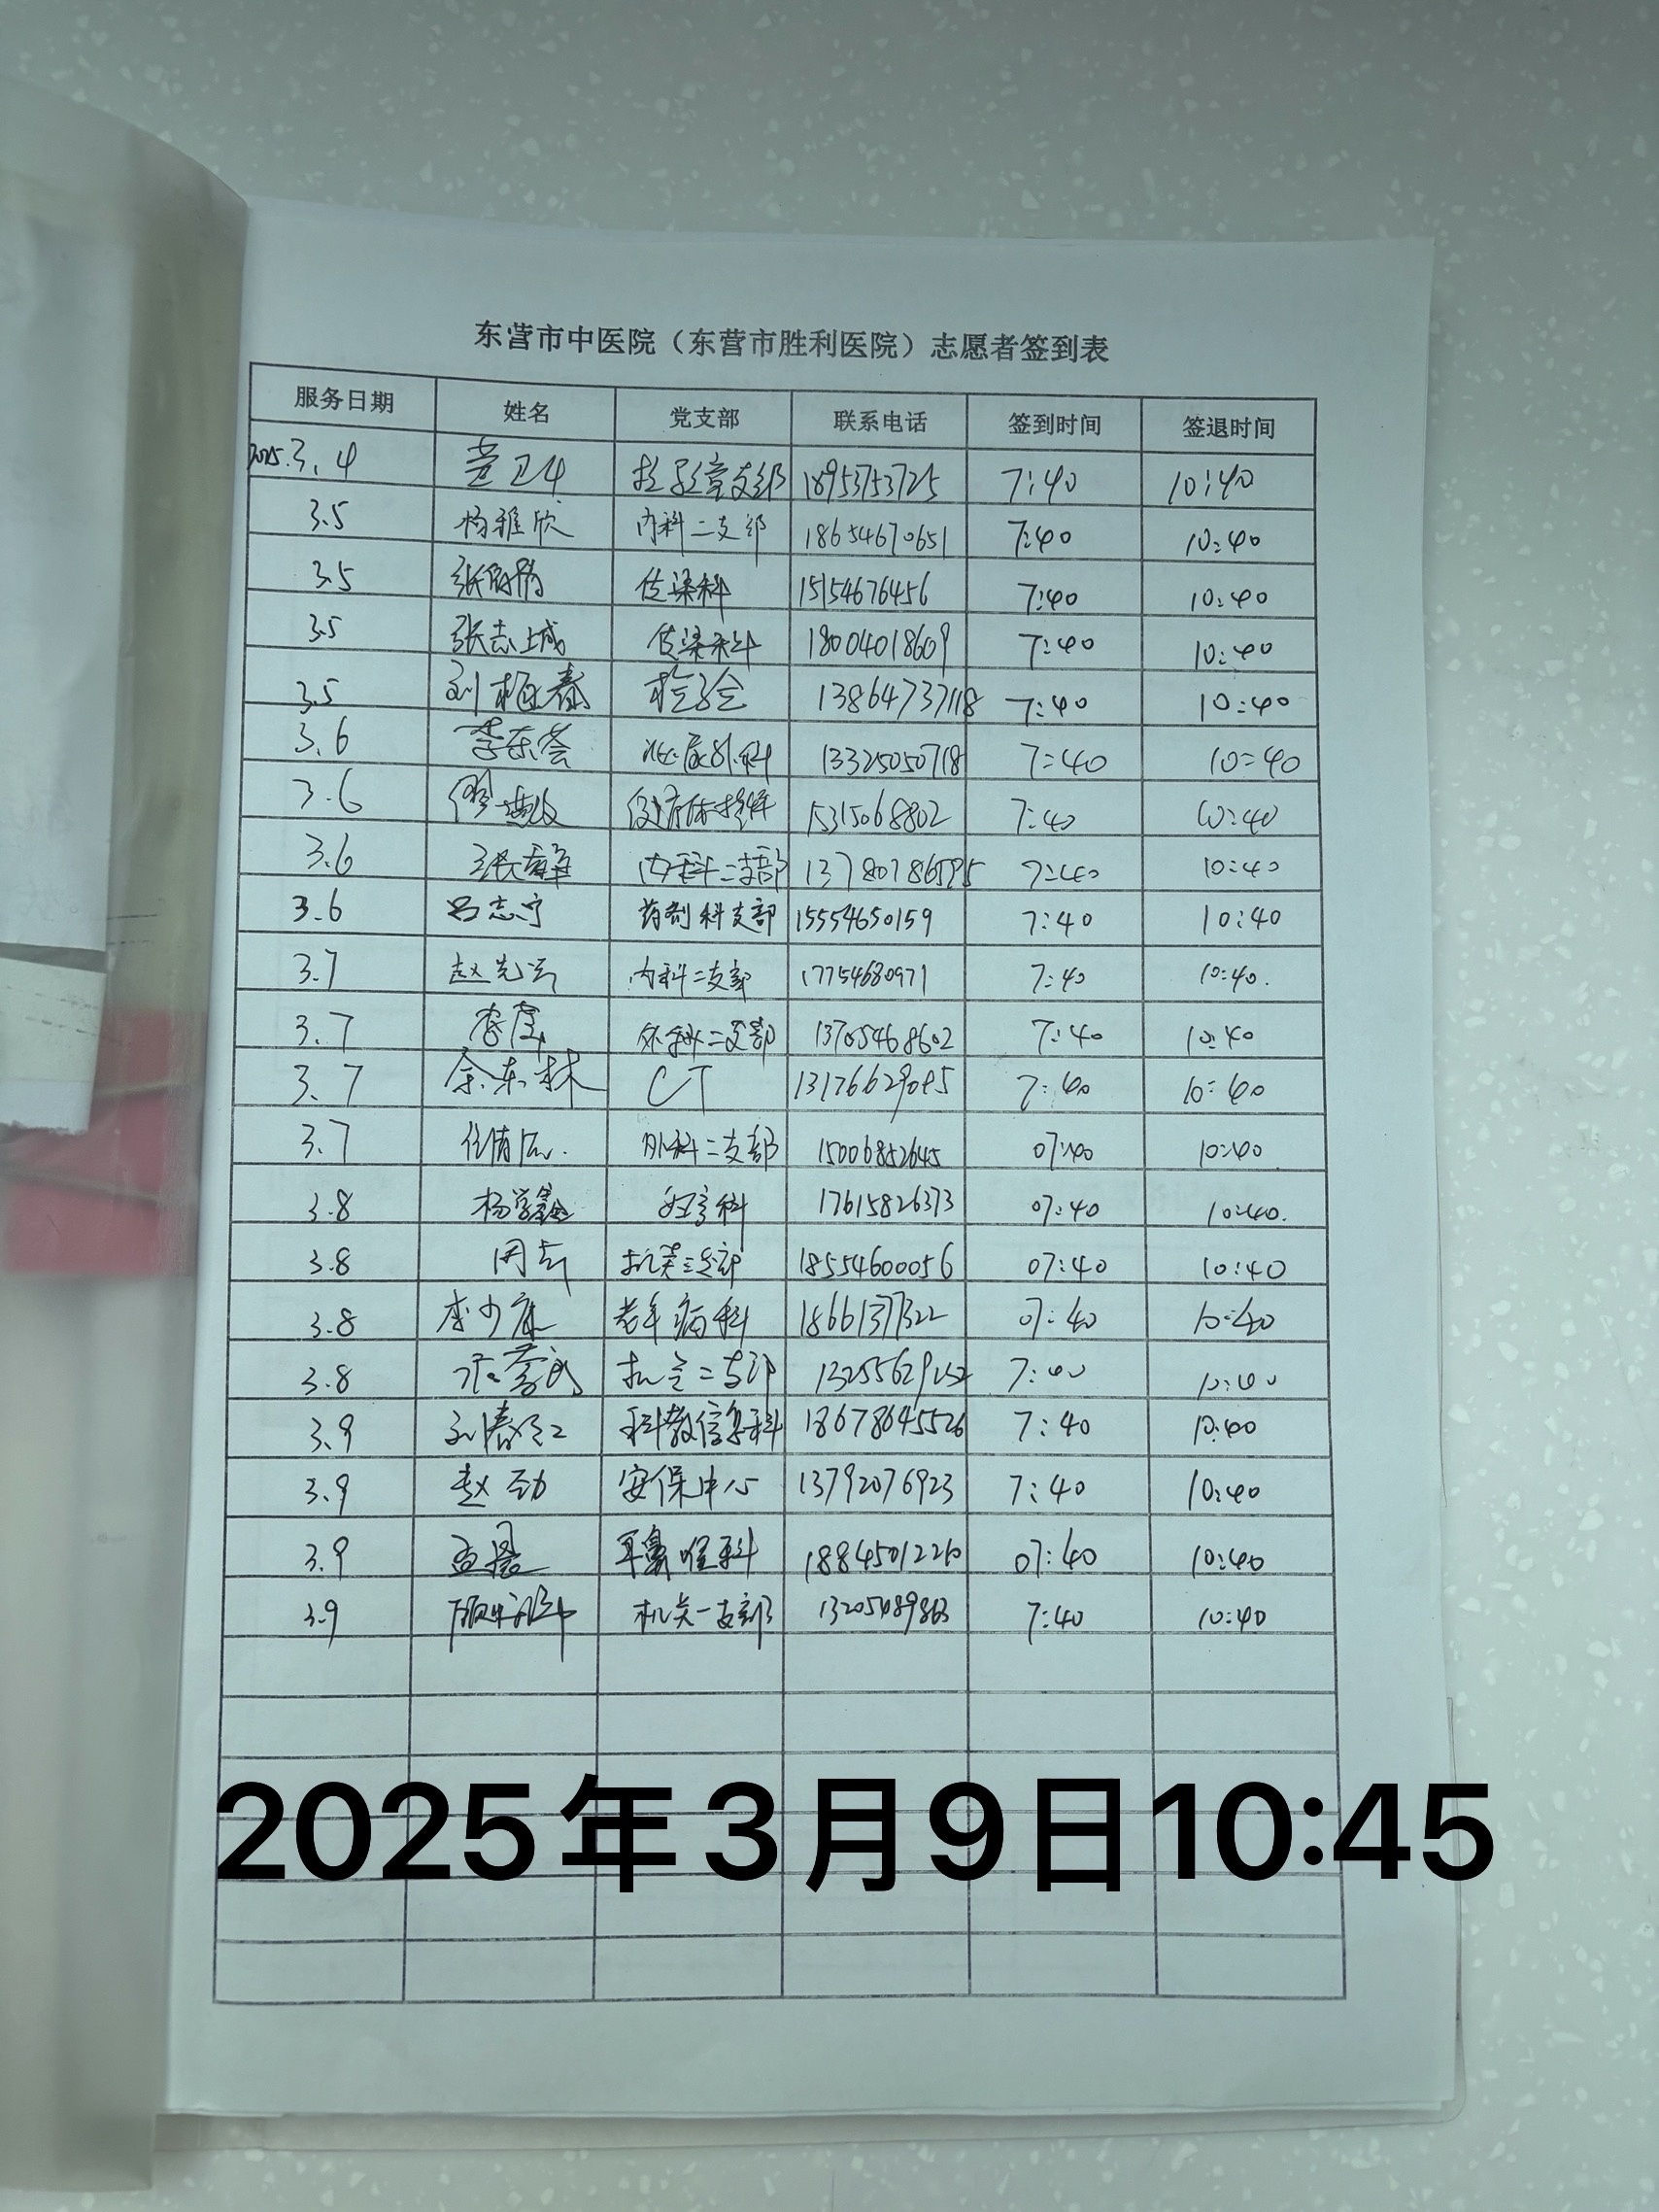 东营市中医院（东营市胜利医院）志愿者签到表
服务日期 姓名 党支部 联系电话 签到时间 签退时间
2025.3.4 18953753725 7:40 10:40
3.5 杨雅欣 内科二支部 18654670651 7:40 10:40
3.5 传染科 15154676456 7:40 10:40
3.5 张志城 传染科 18004018609 7:40 10:40
3.5 检验 13864737118 7:40 10:40
3.6 李东荟 泌尿外科 13325050718 7:40 10:40
3.6 15315068802 7:40 10:40
3.6 内科二支部 7:40 10:40
3.6 吕志宁 药剂科支部 15554650159 7:40 10:40
3.7 内科二支部 17754680971 7:40 10:40.
3.7 外科二支部 13705468602 7:40 10:40
3.7 CT 7:40 10:40
3.7 外科二支部 15006852645 07:40 10:40
3.8 杨学鑫 17615826373 07:40 10:40.
3.8 18554600056 07:40 10:40
3.8 李少康 老年病科 18661377322 07:40 10:40
3.8 7:40 10:40
3.9 刘春红 科教信息科 18678645526 7:40 10:40
3.9 赵劲 安保中心 13792076923 7:40 10:40
3.9 耳鼻喉科 18845012260 07:40 10:40
3.9 机关一支部 7:40 10:40
2025年3月9日10:45